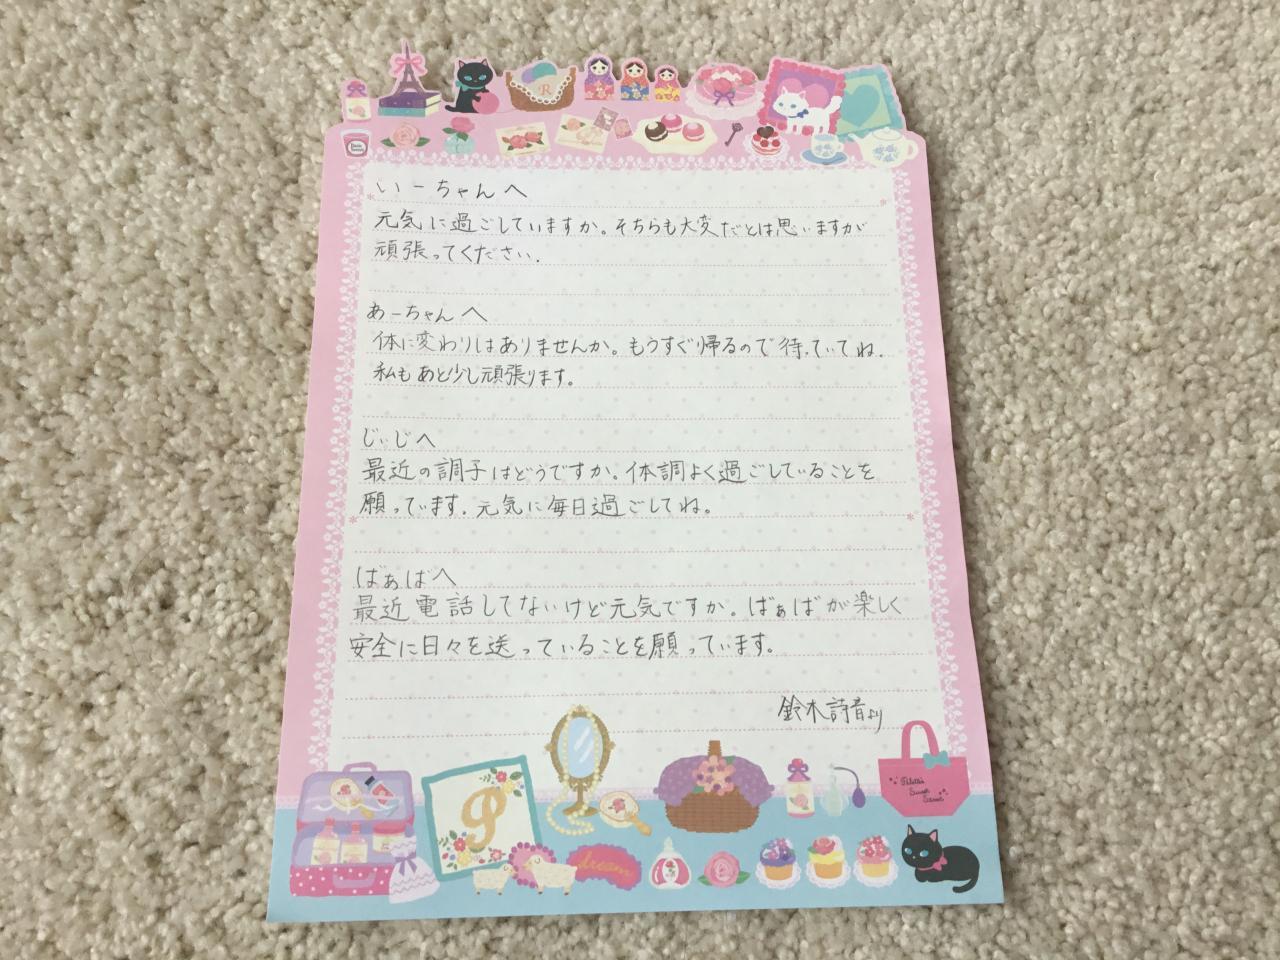 R
いーちゃんへ
元気に過ごしていますか。そちらも大変だとは思いますが
頑張ってください.
あーちゃんへ
体に変わりはありませんか。もうすぐ帰るので待っていてね.
私もあと少し頑張ります。
じぃじへ
最近の調子はどうですか。体調よく過ごしていることを
願っています.元気に毎日過ごしてね。
ばぁばへ
最近電話してないけど元気ですか。ばぁばが楽しく
安全に日々を送っていることを願っています。
鈴木詩音より
P
dream